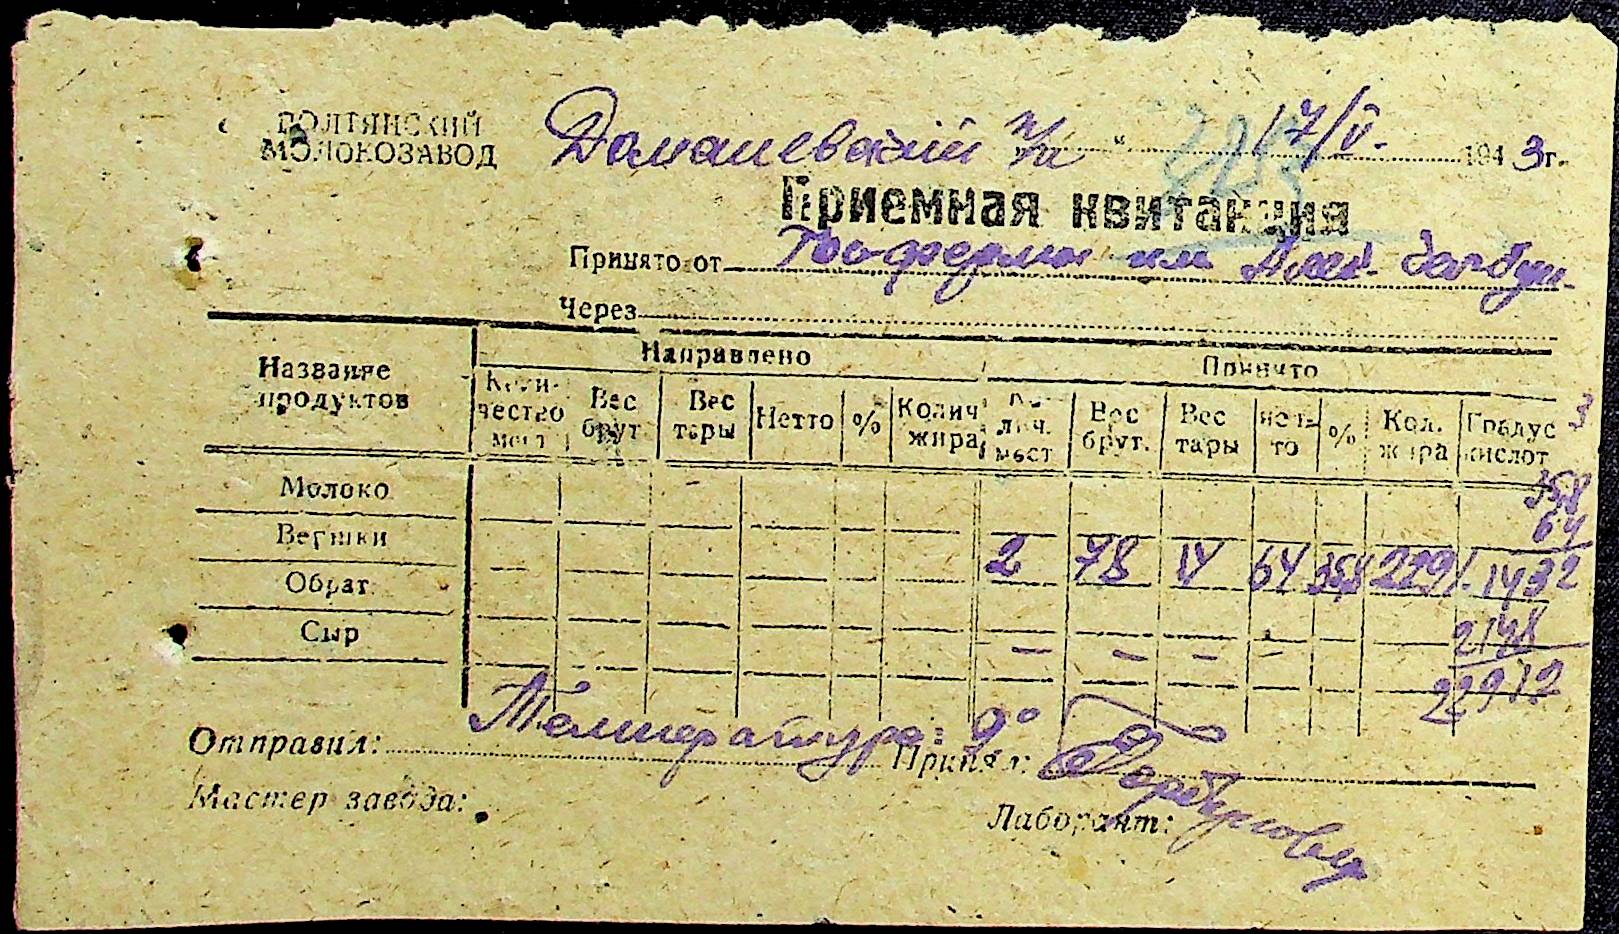 ПОЛТЯНСКИЙ
МОЛОКОЗАВОД
Домашевский п/п " 17/V. 1943г.
Приемная квитанция
Принято от Гос-фермы им
Через
Название продуктов Направлено Принято
Количество мест Вес брут. Вес тары Нетто % Колич. жира Колич. мест Вес брут. Вес тары нетто % Кол. жира Градус кислот
3
Молоко 358
64
Вершки 2 78 14 64 358 2291 1432
Обрат
2148
Сыр — — — —
22912
Температура: 9°
Отправил: Принял:
Мастер завода: Лаборант: